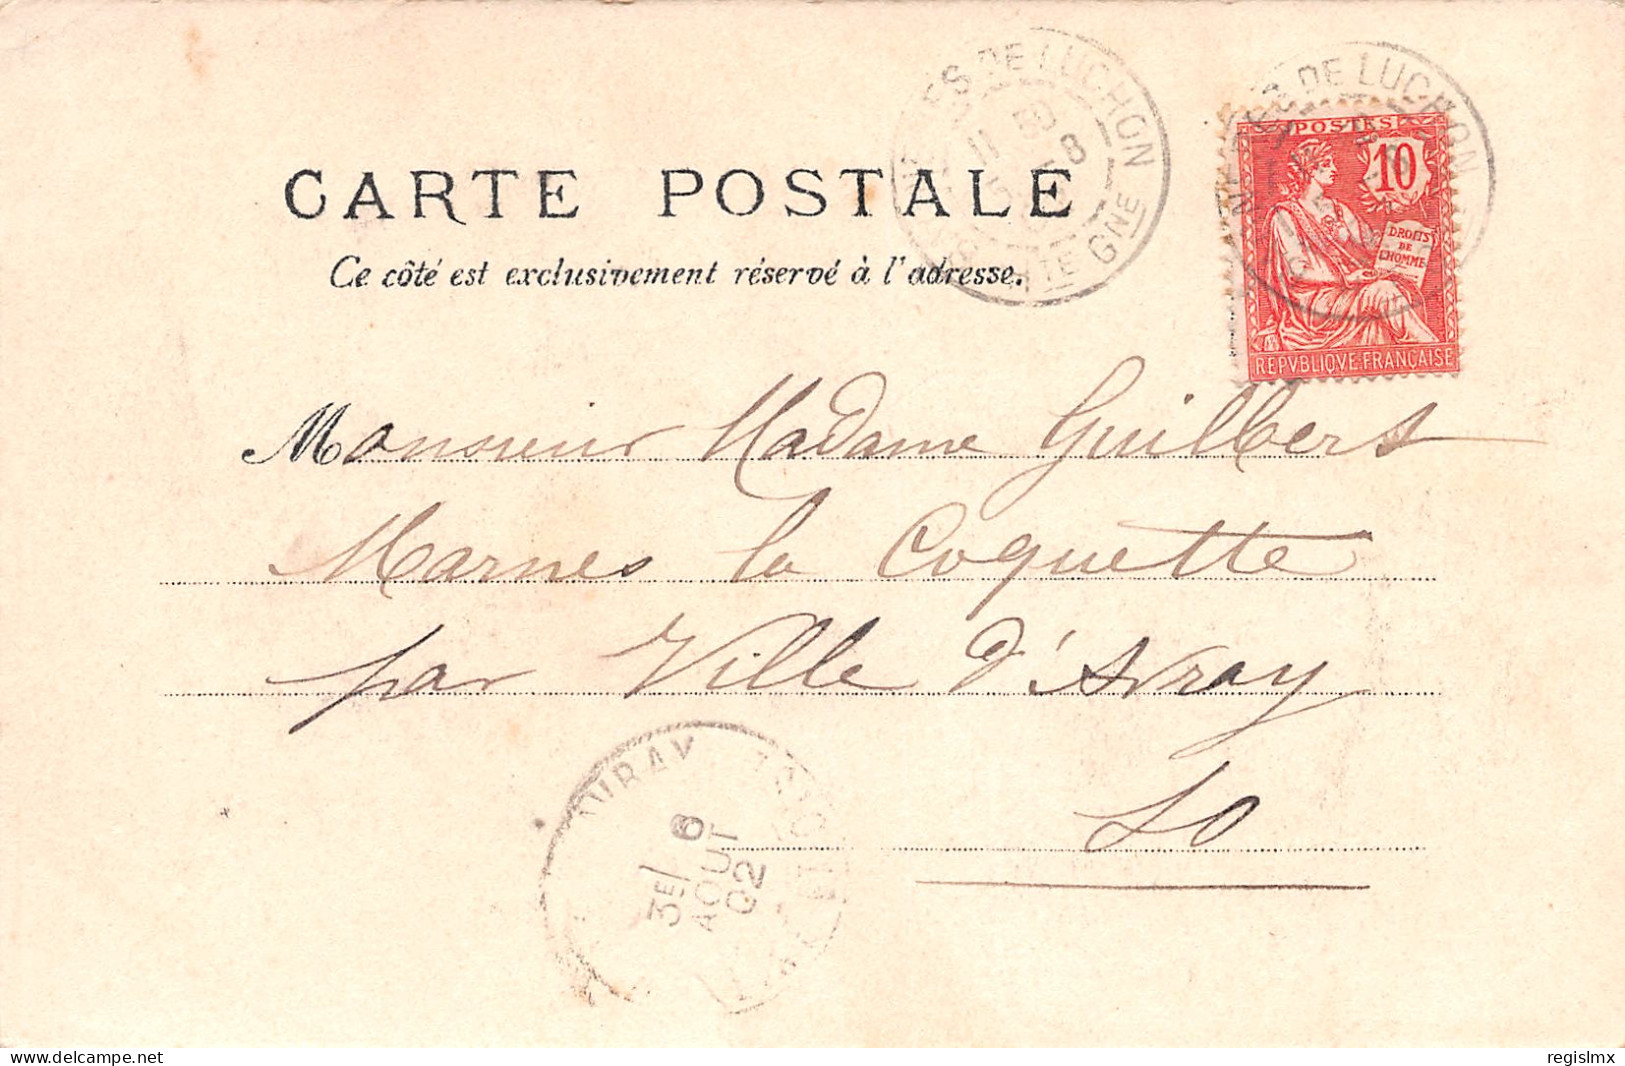 CARTE POSTALE
Ce côté est exclusivement réservé à l'adresse.
ES DE LUCHON
11 50
5 8
HTE GNE
DE LUCHON
POSTES
10
DROITS
DE
L'HOMME
REPVBLIQVE FRANÇAISE
Monsieur Madame Guilbers
Marnes la Coquette
par Ville d'Avray
SO
AVRAY
3E/ 6
AOUT
02
www.delcampe.net
regislmx